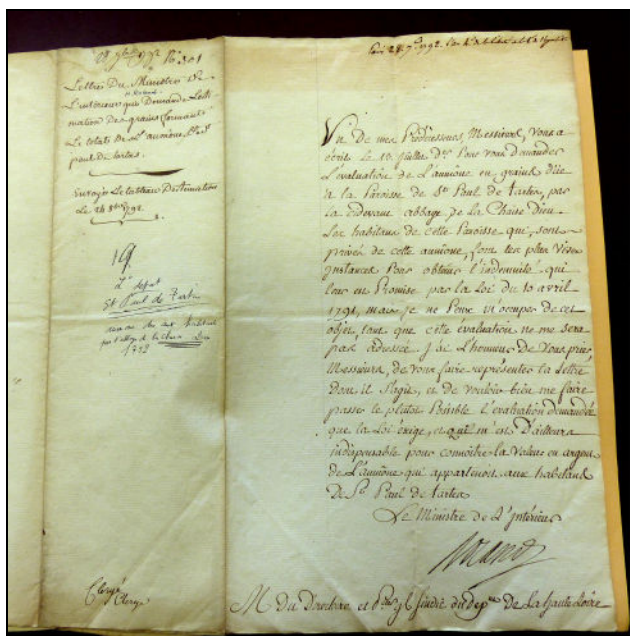 N.° 301
Lettre Du Ministre De
L'intérieur que Demande L'esti-
mation Des grains formant
Le totale De L'aumone De St
paul De tartas.
Envoyé Le tableau D'Estimation
Le 24 8bre 1792.
19
St Paul de Tartas
par l'abbaye de la Chaise Dieu
1792
Clergé
Clergé
Paris 27 7bre 1792. L'an 4e de la Liberté
Un De mes Prédécesseurs, Messieurs, Vous a
écrit Le 13 juillet Der Pour vous demander
L'évaluation De L'aumône en grains düe
a la Paroisse de St Paul de tartas, par
La cidevant abbaye de La Chaise Dieu.
Les habitans de cette Paroisse qui sont
privés de cette aumône, font les plus Vives
instances Pour obtenir l'indemnité qui
leur est Promise par la Loi du 10 avril
1791, mais je ne Peux m'occuper de cet
objet, tant que cette évaluation ne me sera
pas adressée. J'ai L'honneur De Vous prier,
Messieurs, de vous faire représenter la Lettre
Dont il S'agit, et de vouloir bien me faire
passer le plutôt Possible L'évaluation demandée
que la Loi éxige, et qui m'est D'ailleurs
indispensable pour connoître la Valeur en argent
de L'aumône qui appartenoit aux habitans
De St Paul de tartas
Le Ministre de L'Intérieur
Roland
M du Directoire et Pr gl sindic du depnt De La haute Loire